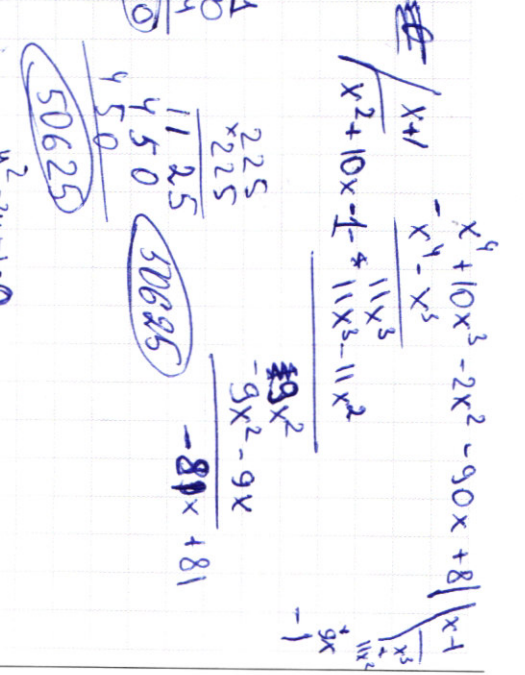 x⁴ + 10x³ - 2x² - 90x + 81 | x-1
- x⁴ - x³
x³
11x³
11x²
11x³ - 11x²
9x
9x²
-1
9x² - 9x
-81x + 81
x+1
x² + 10x - 1
225
×225
1125
450
450
50625
50625